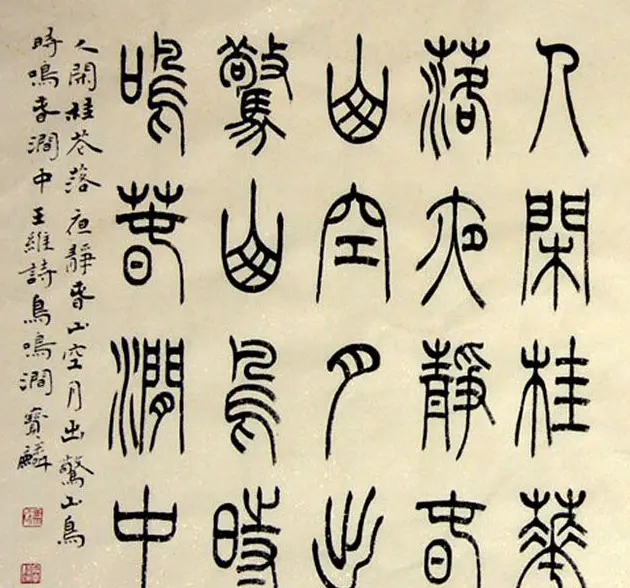 人閑桂華
落夜靜春
山空月出
驚山鳥時
鳴春澗中
人閑桂花落夜靜春山空月出驚山鳥
時鳴春澗中王維詩鳥鳴澗寶麟